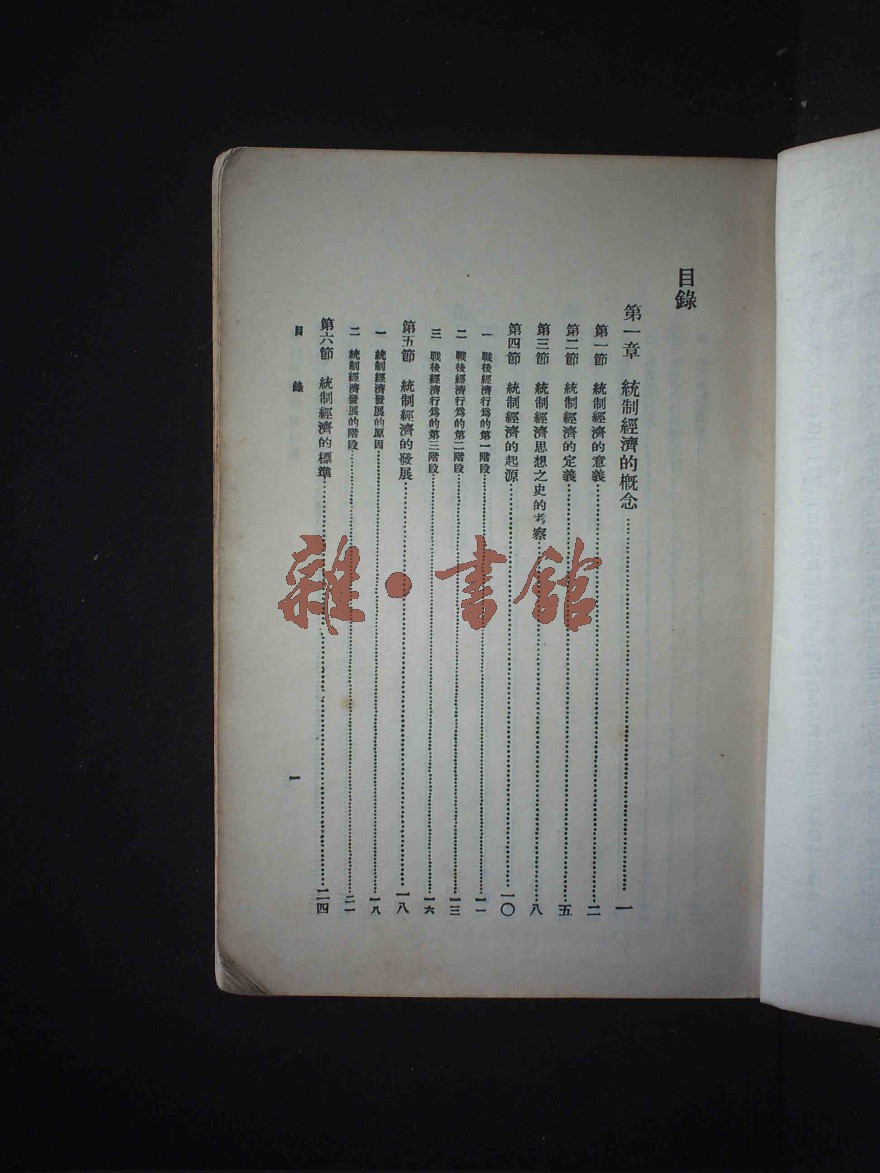 目錄
第一章　統制經濟的概念……一
第一節　統制經濟的意義……二
第二節　統制經濟的定義……五
第三節　統制經濟思想之史的考察……八
第四節　統制經濟的起源……一〇
一　戰後經濟行爲的第一階段……一一
二　戰後經濟行爲的第二階段……一三
三　戰後經濟行爲的第三階段……一六
第五節　統制經濟的發展……一八
一　統制經濟發展的原因……一八
二　統制經濟發展的階段……二一
第六節　統制經濟的標準……二四
目錄
一
雜·書館